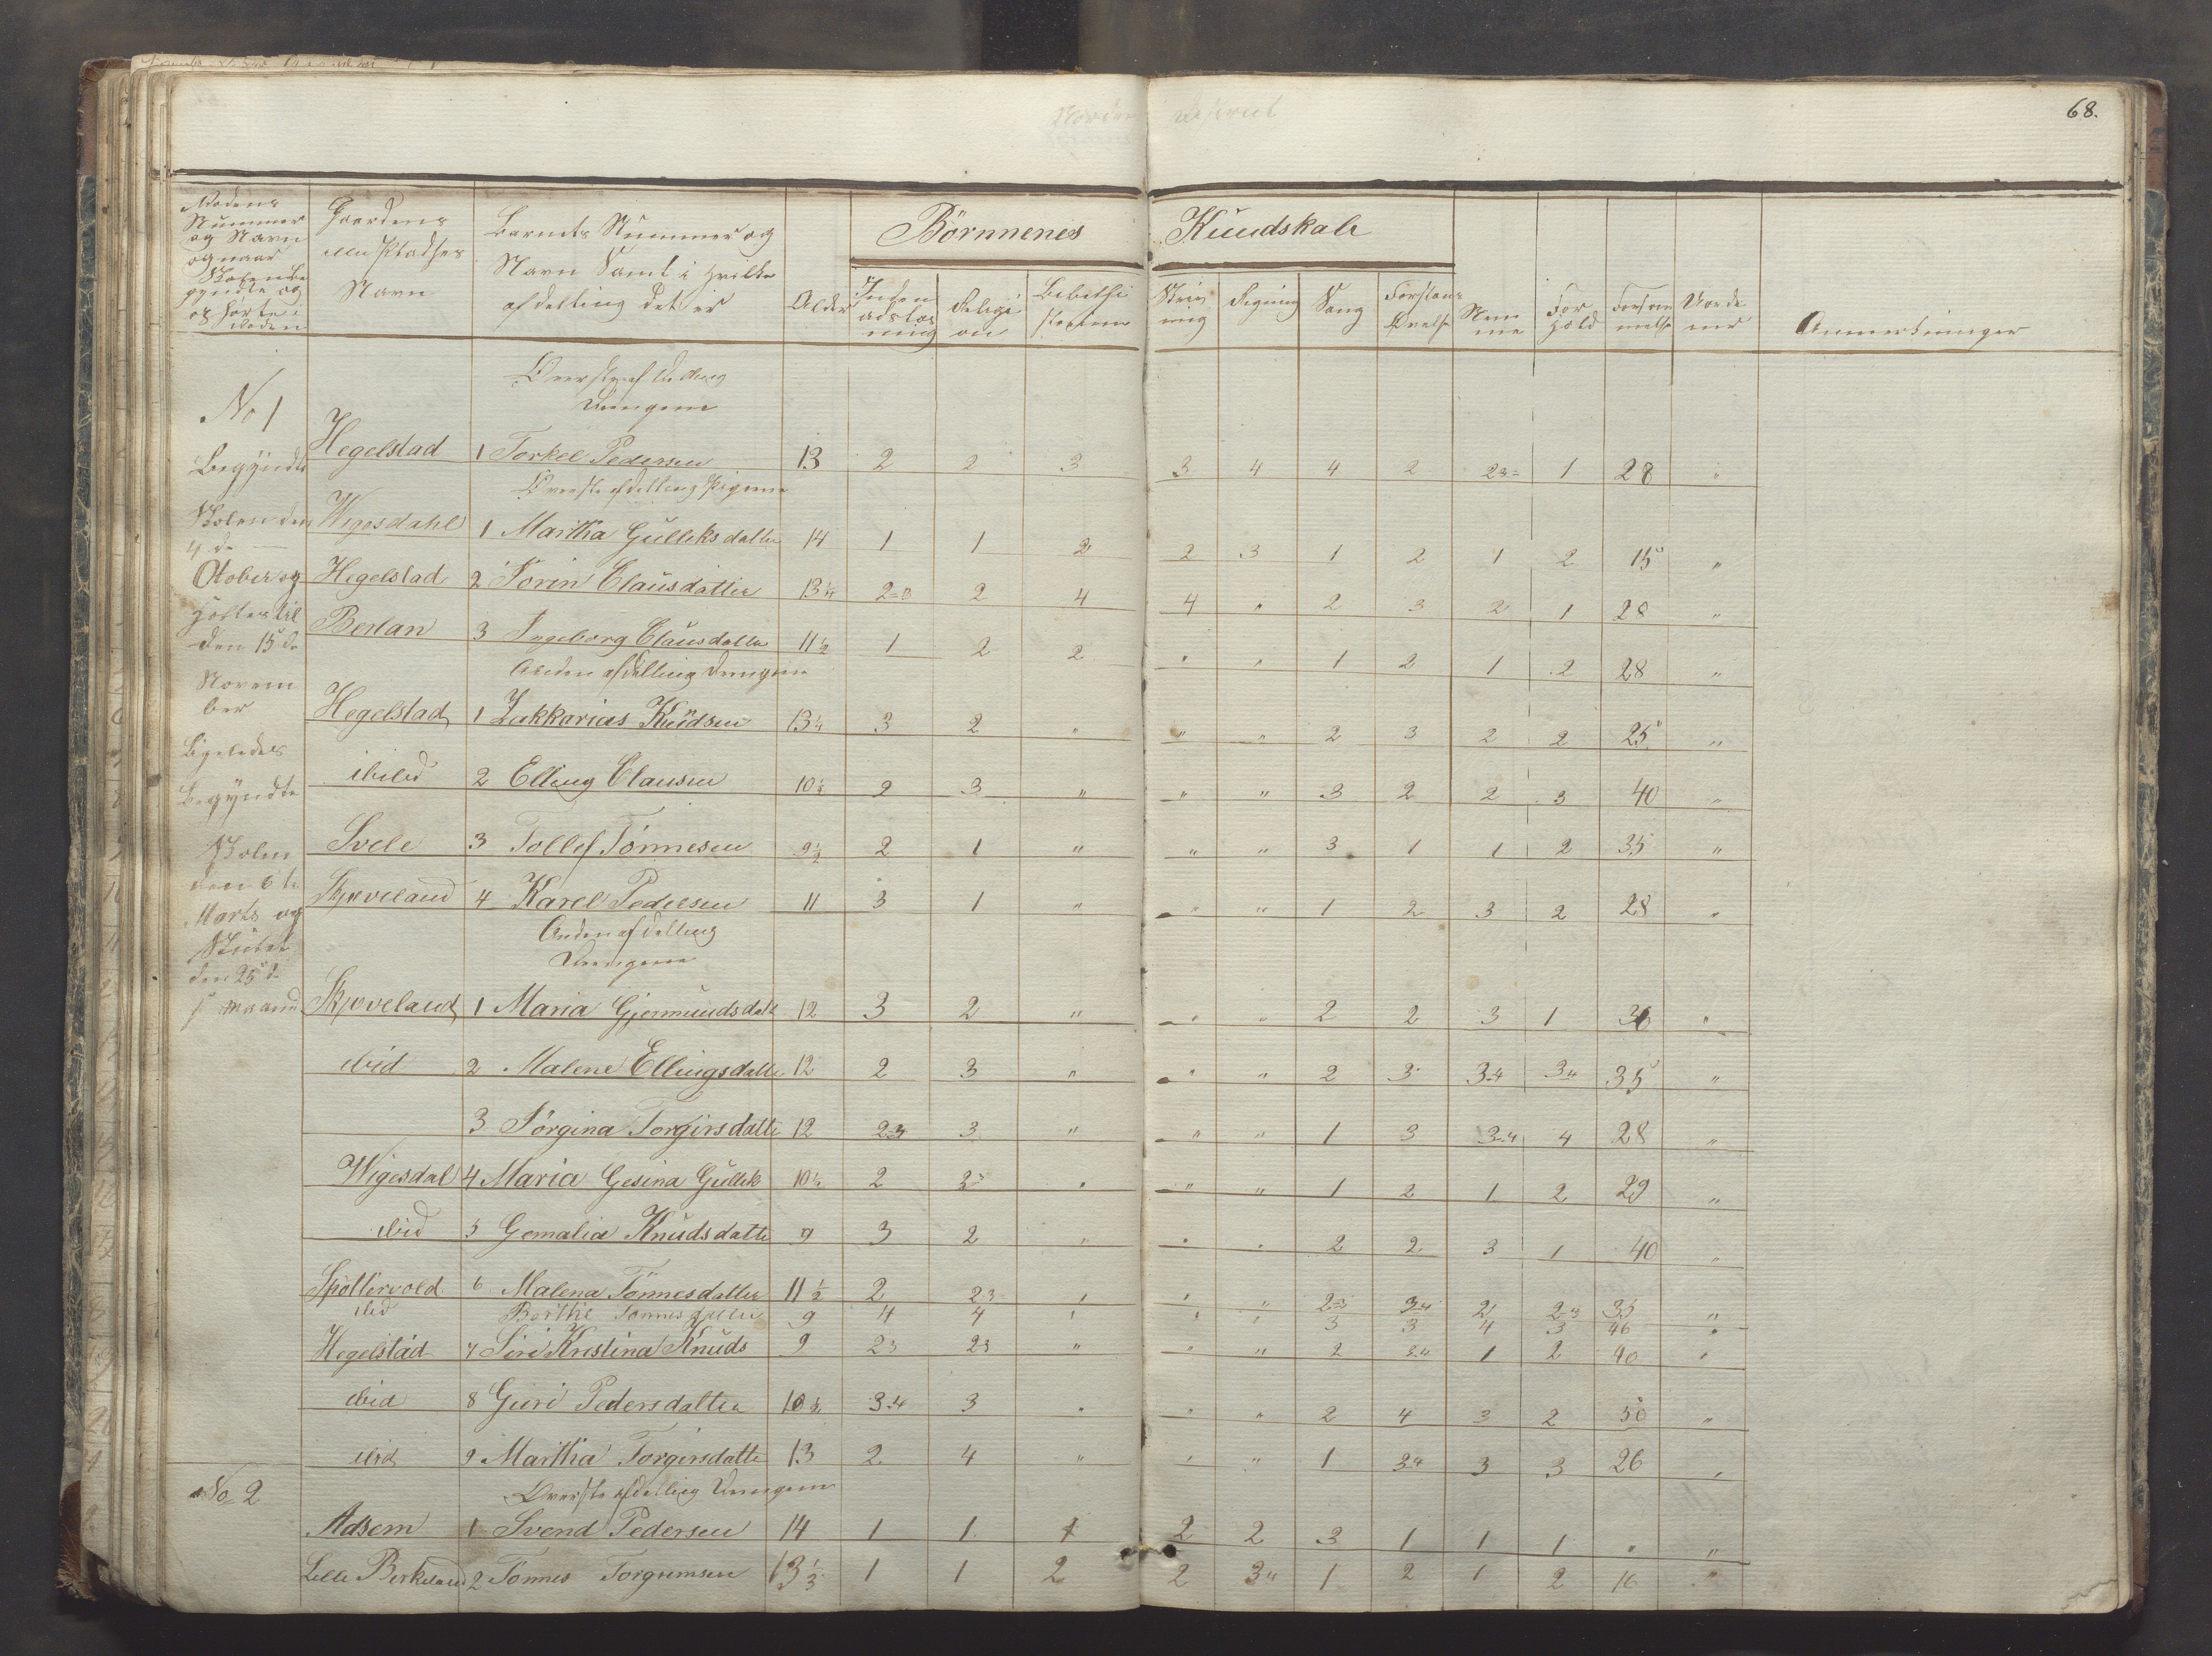 68.
Rodens Nummer og Navn og naar Skolen begyndte og ophørte i Roden | Gaardens eller Pladsens Navn | Barnets Nummer og Navn Samt i hvilken afdelling det er | Alder | Börnnenes Kundskab | Religion | Skrivning | Regning | Sang | Nemme | Forhold | Anmerkninger
No 1
Begyndte Skolen den 4 de Otober og holdtes til den 15 de November
Ligeledes Begyndte Skolen den 6te Marts og Slutet den 25 de
Överste afdelling Drengene
Hegelstad 1 Torkel Pedersen 13 2 2 3 3 4 4 2 23 1 28 "
Överste afdelling Pigerne
Wigesdahl 1 Martha Gulleksdatter 14 1 1 2 2 3 1 2 1 2 15 "
Hegelstad 2 Torin Clausdatter 13¼ 2-3 2 4 4 " 2 3 2 1 28 "
Berlan 3 Ingeborg Clausdatter 11½ 1 2 2 " " 1 2 1 2 28 "
Anden afdelling Drengene
Hegelstad 1 Zakkarias Knudsen 13¼ 3 2 " " " 2 3 2 2 25 "
ibid 2 Elling Clausen 10½ 2 3 " " " 3 2 2 3 40 "
Svele 3 Tollef Tönnesen 9½ 2 1 " " " 3 1 1 2 35 "
Skjæveland 4 Karel Pedersen 11 3 1 " " " 1 2 3 2 28 "
Anden afdelling
Drengene
Skjæveland 1 Maria Gjermundsdatt 12 3 2 " " " 2 2 3 1 36 "
ibid 2 Malene Ellingsdatte 12 2 3 " " " 2 3 3-4 3-4 35 "
3 Jörgina Torgirsdatte 12 2-3 3 " " " 1 3 3-4 4 28 "
Wigesdal 4 Maria Gesina Gullek 10½ 2 23 " " " 1 2 1 2 29 "
ibid 5 Gemalia Knudsdatte 9 3 2 " " " 2 2 3 1 40 "
Spöttervold 6 Malena Tönnesdatter 11½ 2 23 " " " 2-3 3-4 2 2-3 35 "
ibid Berthe Tönnesdatter 9 4 4 " " " 3 3 4 3 46 "
Hegelstad 7 Siri Kristina Knuds 9 23 23 " " " 2 3-4 1 2 40 "
ibid 8 Guri Pedersdatter 10½ 3-4 3 " " " 2 4 3 2 50 "
ibid 9 Martha Torgirsdatte 13 2 4 " " " 1 34 3 3 26 "
No 2
Överste afdelling Drengene
Adsem 1 Svend Pedersen 14 1 1 1 2 2 3 1 1 1 " "
Lille Birkeland 2 Tönnes Torgrimsen 13⅓ 1 1 2 2 34 1 2 1 2 16 "